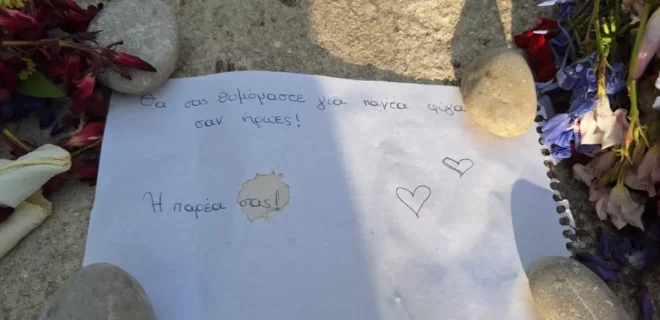 Θα σας θυμόμαστε για πάντα φίλοι
σαν ήρωες!
Η παρέα σας!